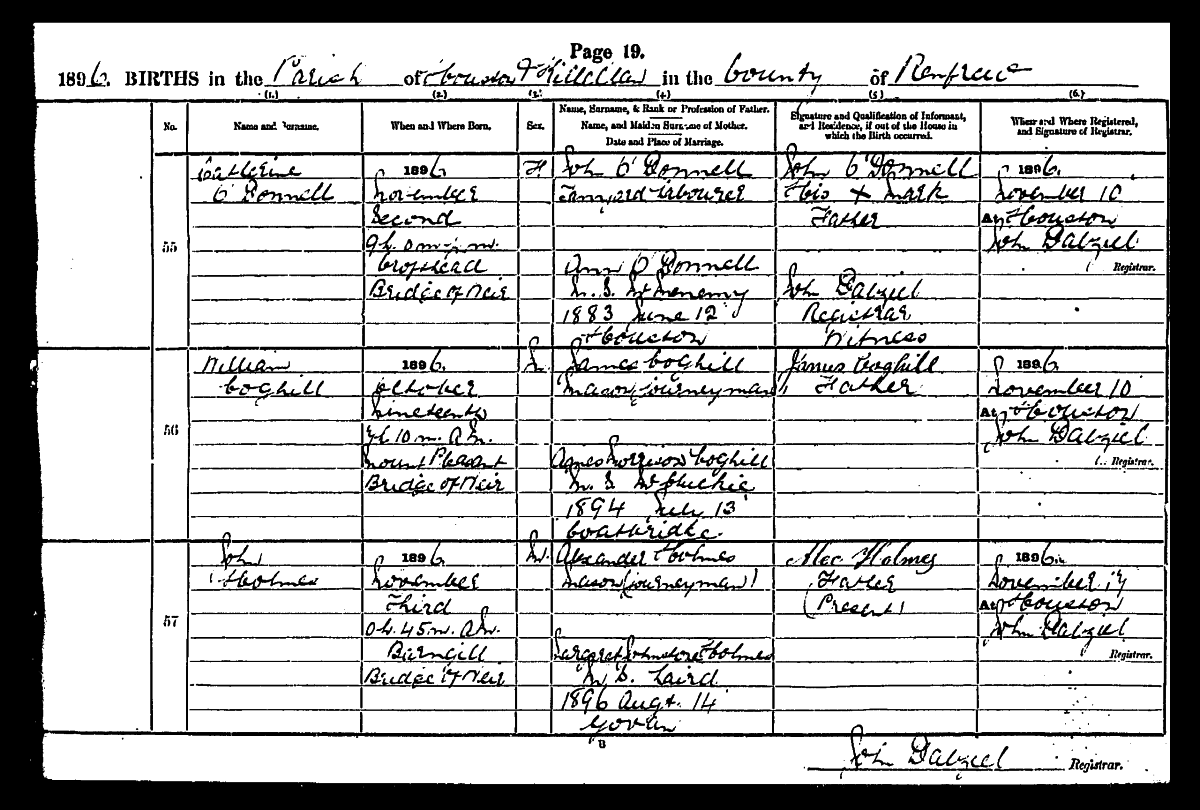 Page 19.
1896. BIRTHS in the Parish of Houston & Killellan in the County of Renfrew
(1.) (2.) (3.) (4.) (5.) (6.)
No. Name and Surname. When and Where Born. Sex. Name, Surname, & Rank or Profession of Father.
Name, and Maiden Surname of Mother.
Date and Place of Marriage.
Signature and Qualification of Informant,
and Residence, if out of the House in
which the Birth occurred.
When and Where Registered,
and Signature of Registrar.
55
Catherine
O'Donnell
1896,
November
Second
9h. 0m. P.M.
Crosshead
Bridge of Weir
F.
John O'Donnell
Tanyard Labourer
Ann O'Donnell
M.S. McMenemy
1883 June 12
Houston
John O'Donnell
His X Mark
Father
John Dalziel
Registrar
Witness
1896,
November 10
At Houston
John Dalziel
Registrar.
56
William
Coghill
1896,
October
Nineteenth
10 m. A.M.
Mount Pleasant
Bridge of Weir
M.
James Coghill
Mason (Journeyman)
Agnes Morrison Coghill
M.S. McGhie
1894 July 13
Coatbridge
James Coghill
Father
1896,
November 10
At Houston
John Dalziel
Registrar.
57
John
Holmes
1896,
November
Third
0h. 45m. A.M.
Barngill
Bridge of Weir
M.
Alexander Holmes
Mason (Journeyman)
Margaret Johnstone Holmes
M.S. Laird
1896 Augt. 14
Govan
Alec Holmes
Father
(Present)
1896,
November 17
At Houston
John Dalziel
Registrar.
B
John Dalziel Registrar.